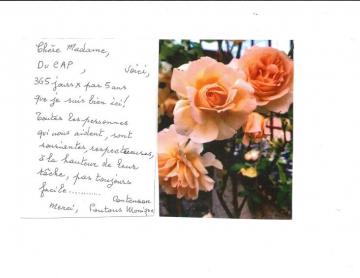 Chère Madame,
Du CAP, voici,
365 jours x par 5 ans
que je suis bien ici!
Toutes les personnes
qui nous aident, sont
souriantes, respectueuses,
à la hauteur de leur
tâche, pas toujours
facile............
Merci, Monique